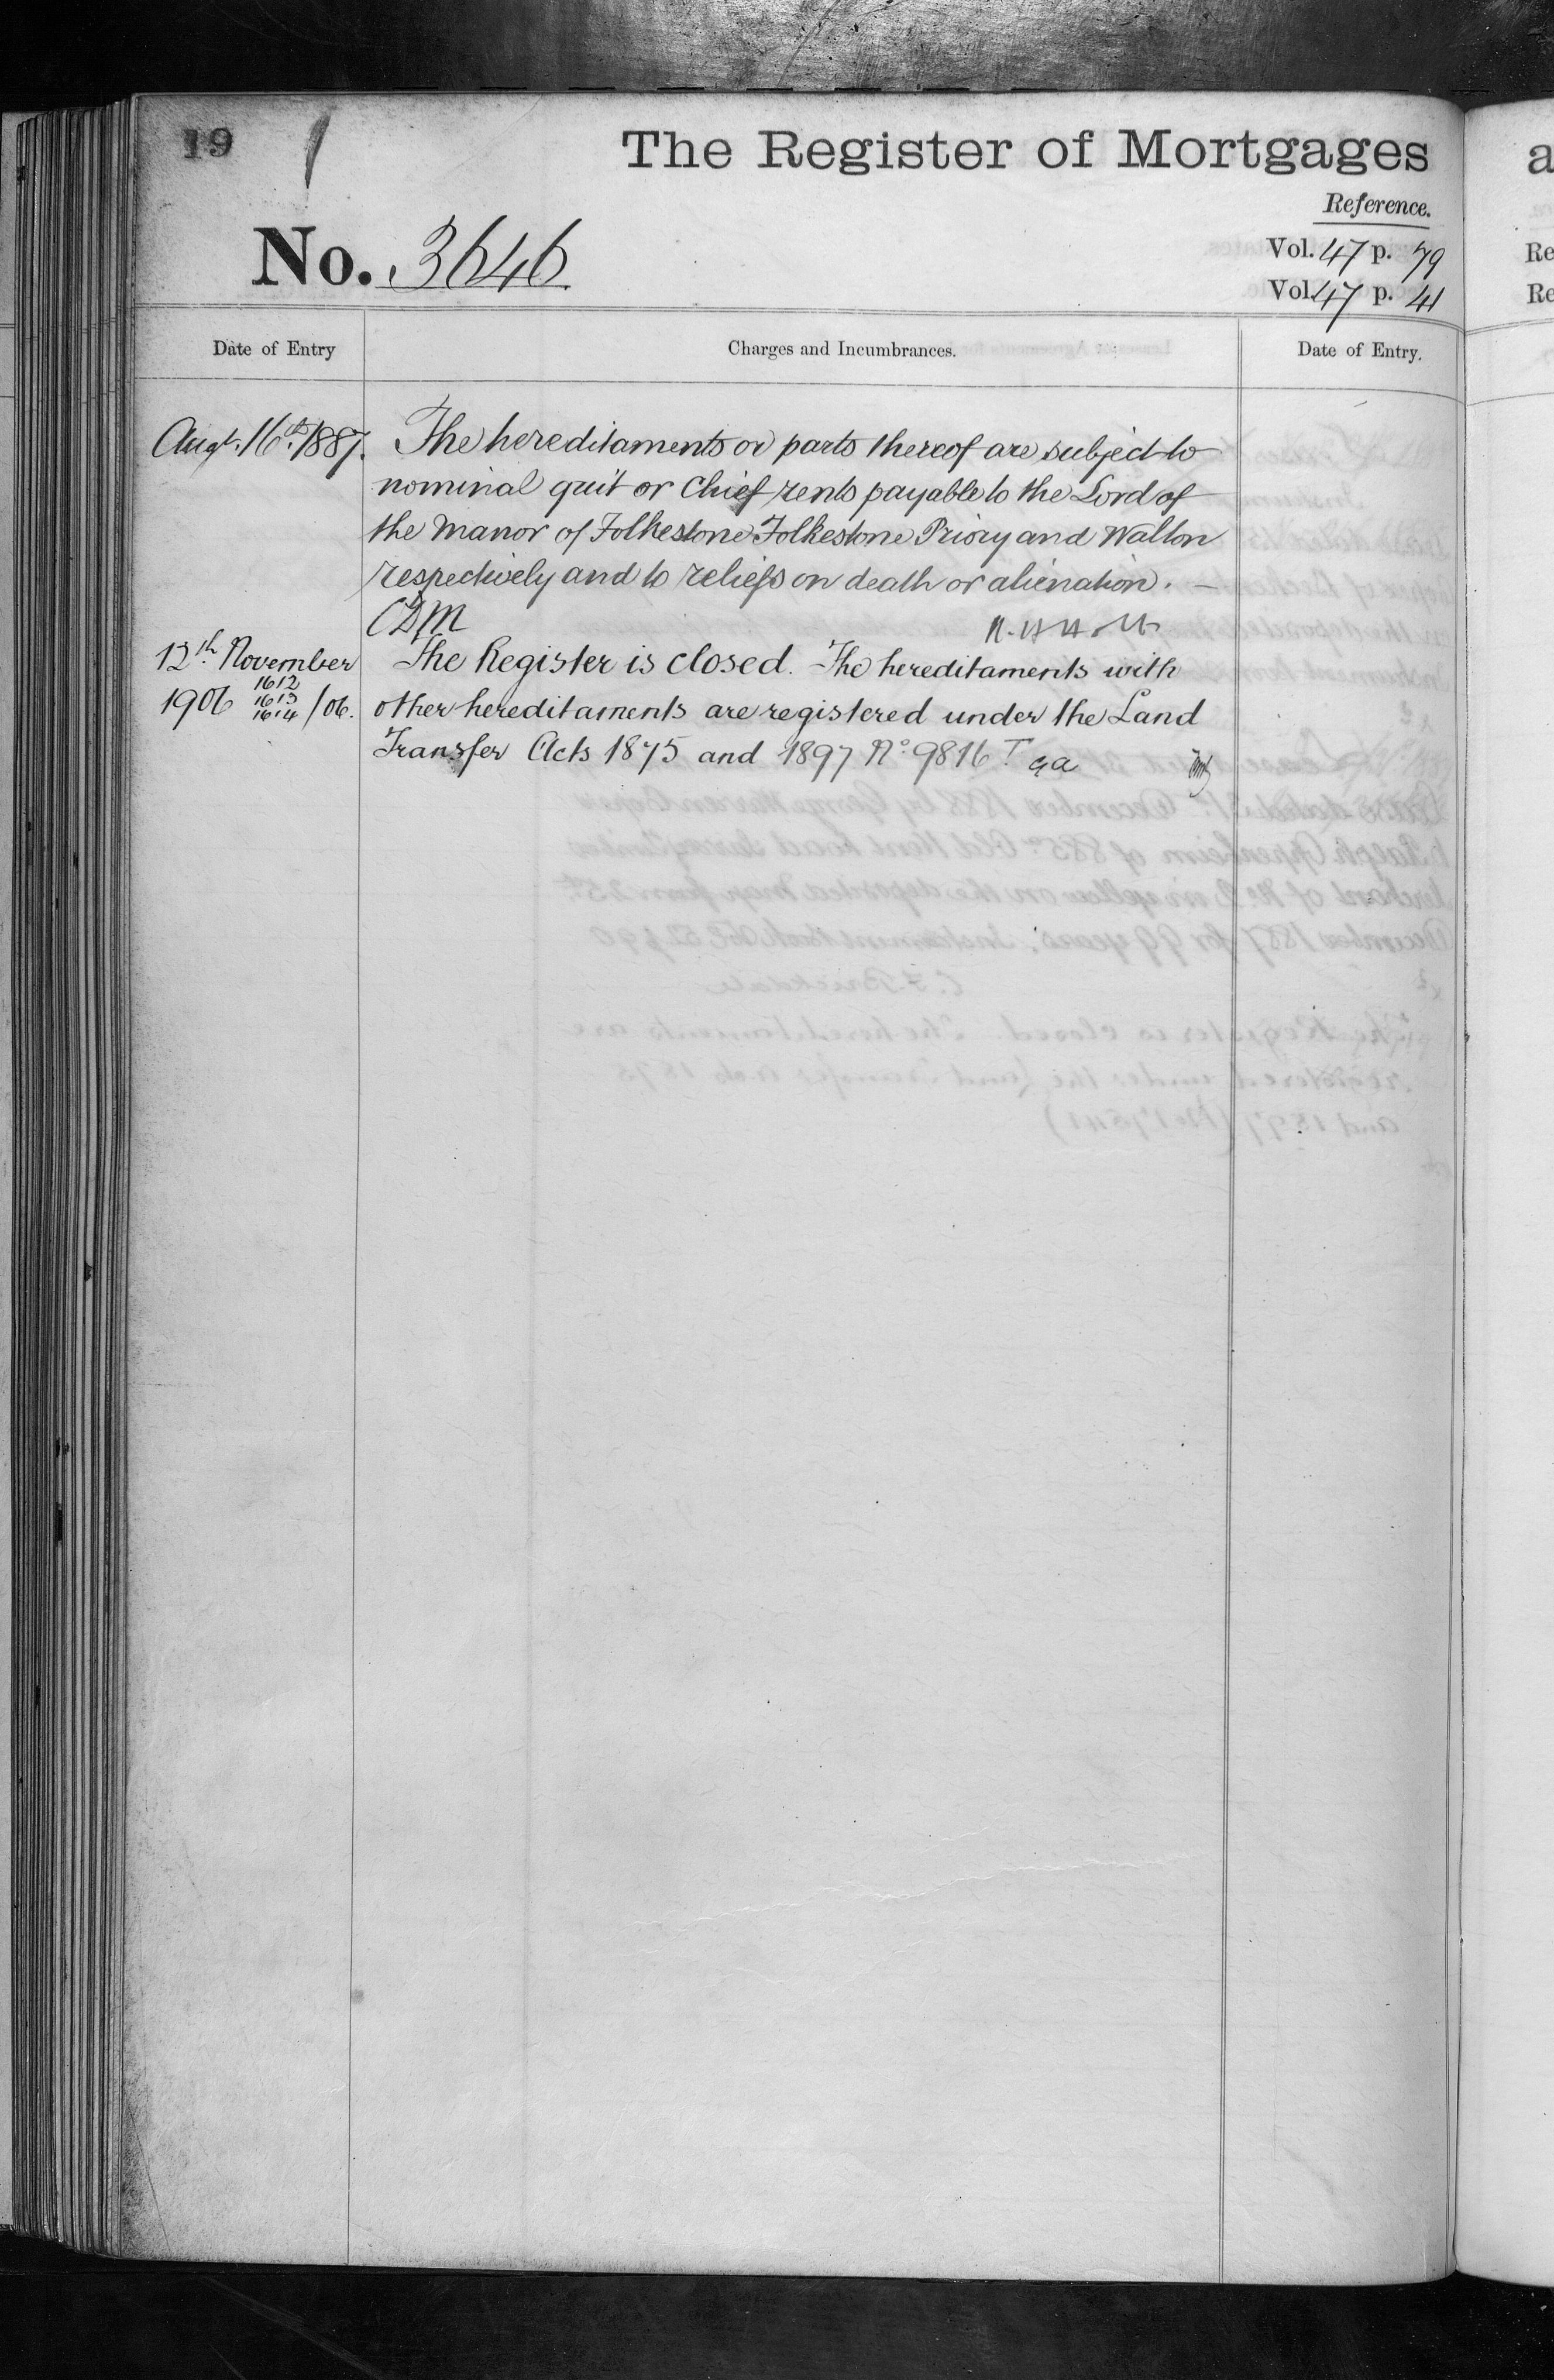 19
The Register of Mortgages
Reference.
No. 3646
Vol. 47 p. 79
Vol. 47 p. 41
Date of Entry
Charges and Incumbrances.
Date of Entry.
Augt. 16th 1887. The hereditaments or parts thereof are subject to
nominal quit or Chief rents payable to the Lord of
the Manor of Folkestone Folkestone Priory and Walton
respectively and to reliefs on death or alienation. —
CDM
12th November The Register is closed. The hereditaments with
1906 1612 1613 1614 /06. other hereditaments are registered under the Land
Transfer Acts 1875 and 1897 No. 9816
a
Re
Re